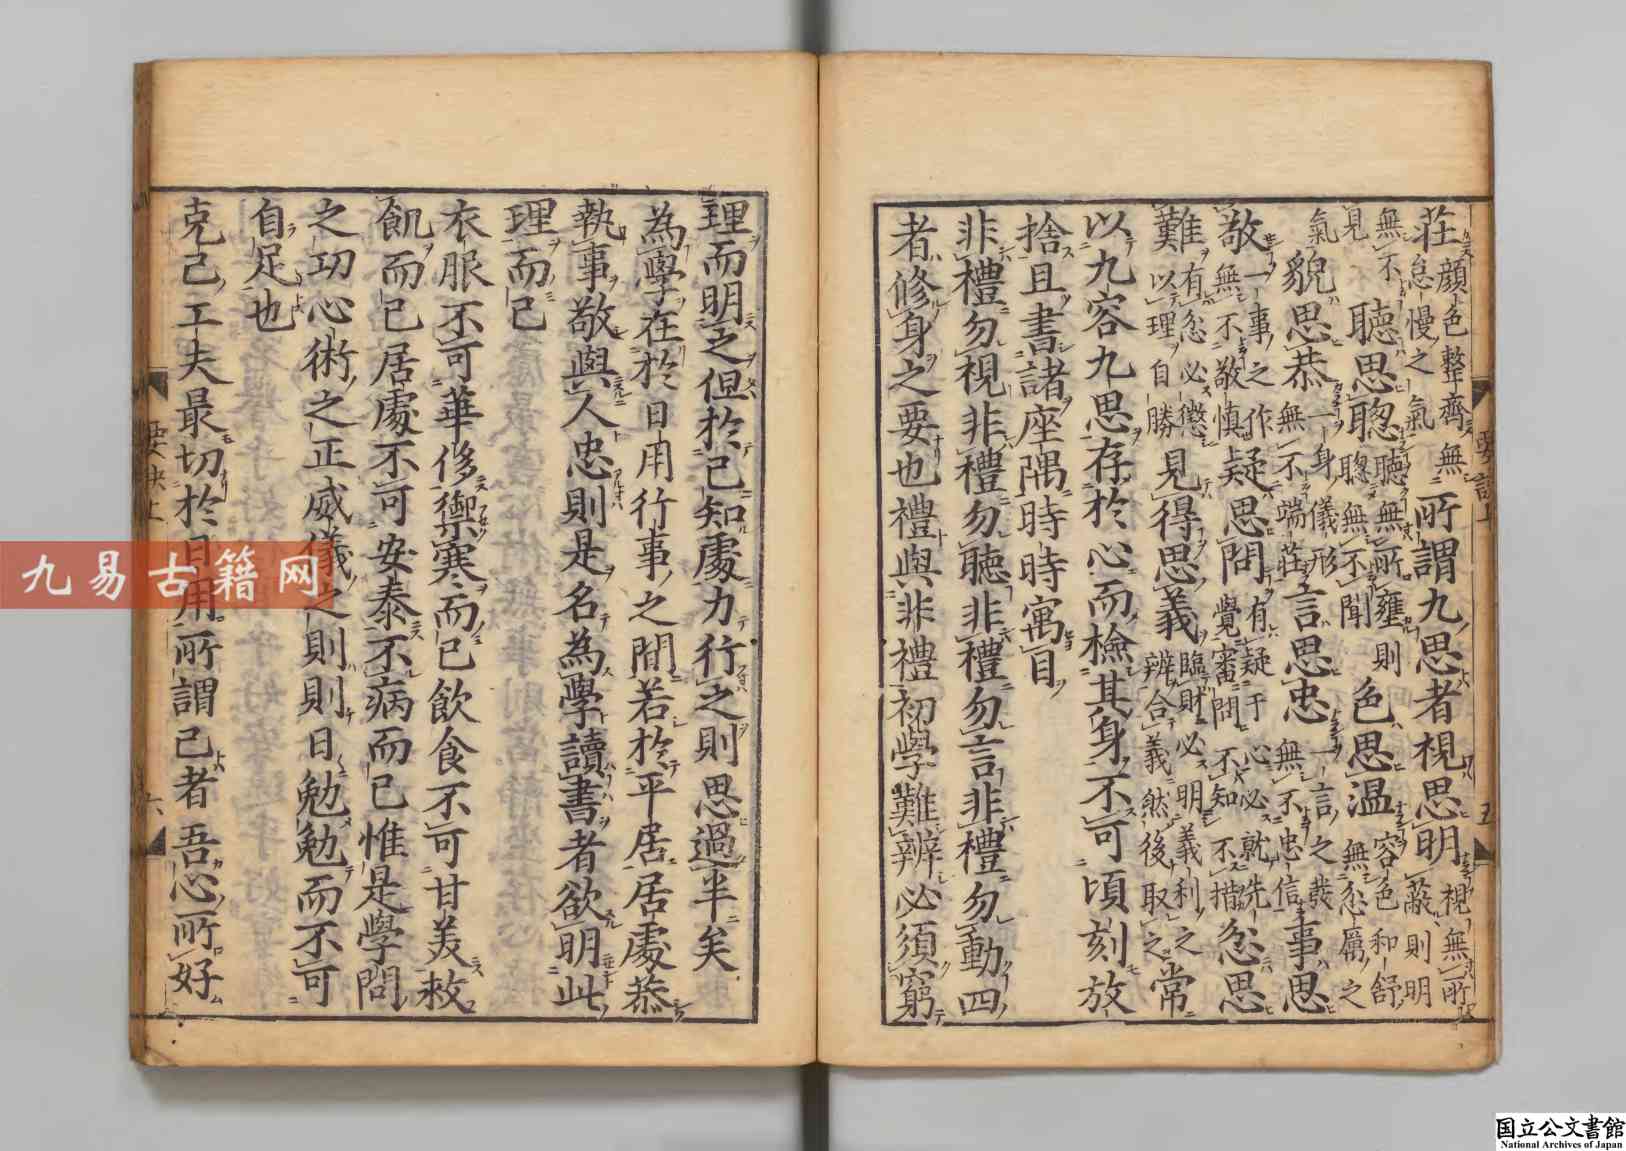 莊顔色整齊無怠慢之氣所謂九思者視思明視無所蔽則明
無不見聽思聰聽無所壅則聰無不聞色思溫容色和舒無忿厲之
氣貌思恭一身儀形無不端莊言思忠一言之發無不忠信事思
敬一事之作無不敬慎疑思問有疑于心必就先覺審問不知不措忿思
難有忿必懲以理自勝見得思義臨財必明義利之辨合義然後取之常
以九容九思存於心而檢其身不可頃刻放
捨且書諸座隅時時寓目
非禮勿視非禮勿聽非禮勿言非禮勿動四
者修身之要也禮與非禮初學難辨必須窮
理而明之但於已知處力行之則思過半矣
為學在於日用行事之間若於平居居處恭
執事敬與人忠則是名為學讀書者欲明此
理而已
衣服不可華侈禦寒而已飲食不可甘美救
飢而已居處不可安泰不病而已惟是學問
之功心術之正威儀之則則日勉勉而不可
自足也
克己工夫最切於日用所謂己者吾心所好
要訣上
六
九易古籍网
国立公文書館
National Archives of Japan